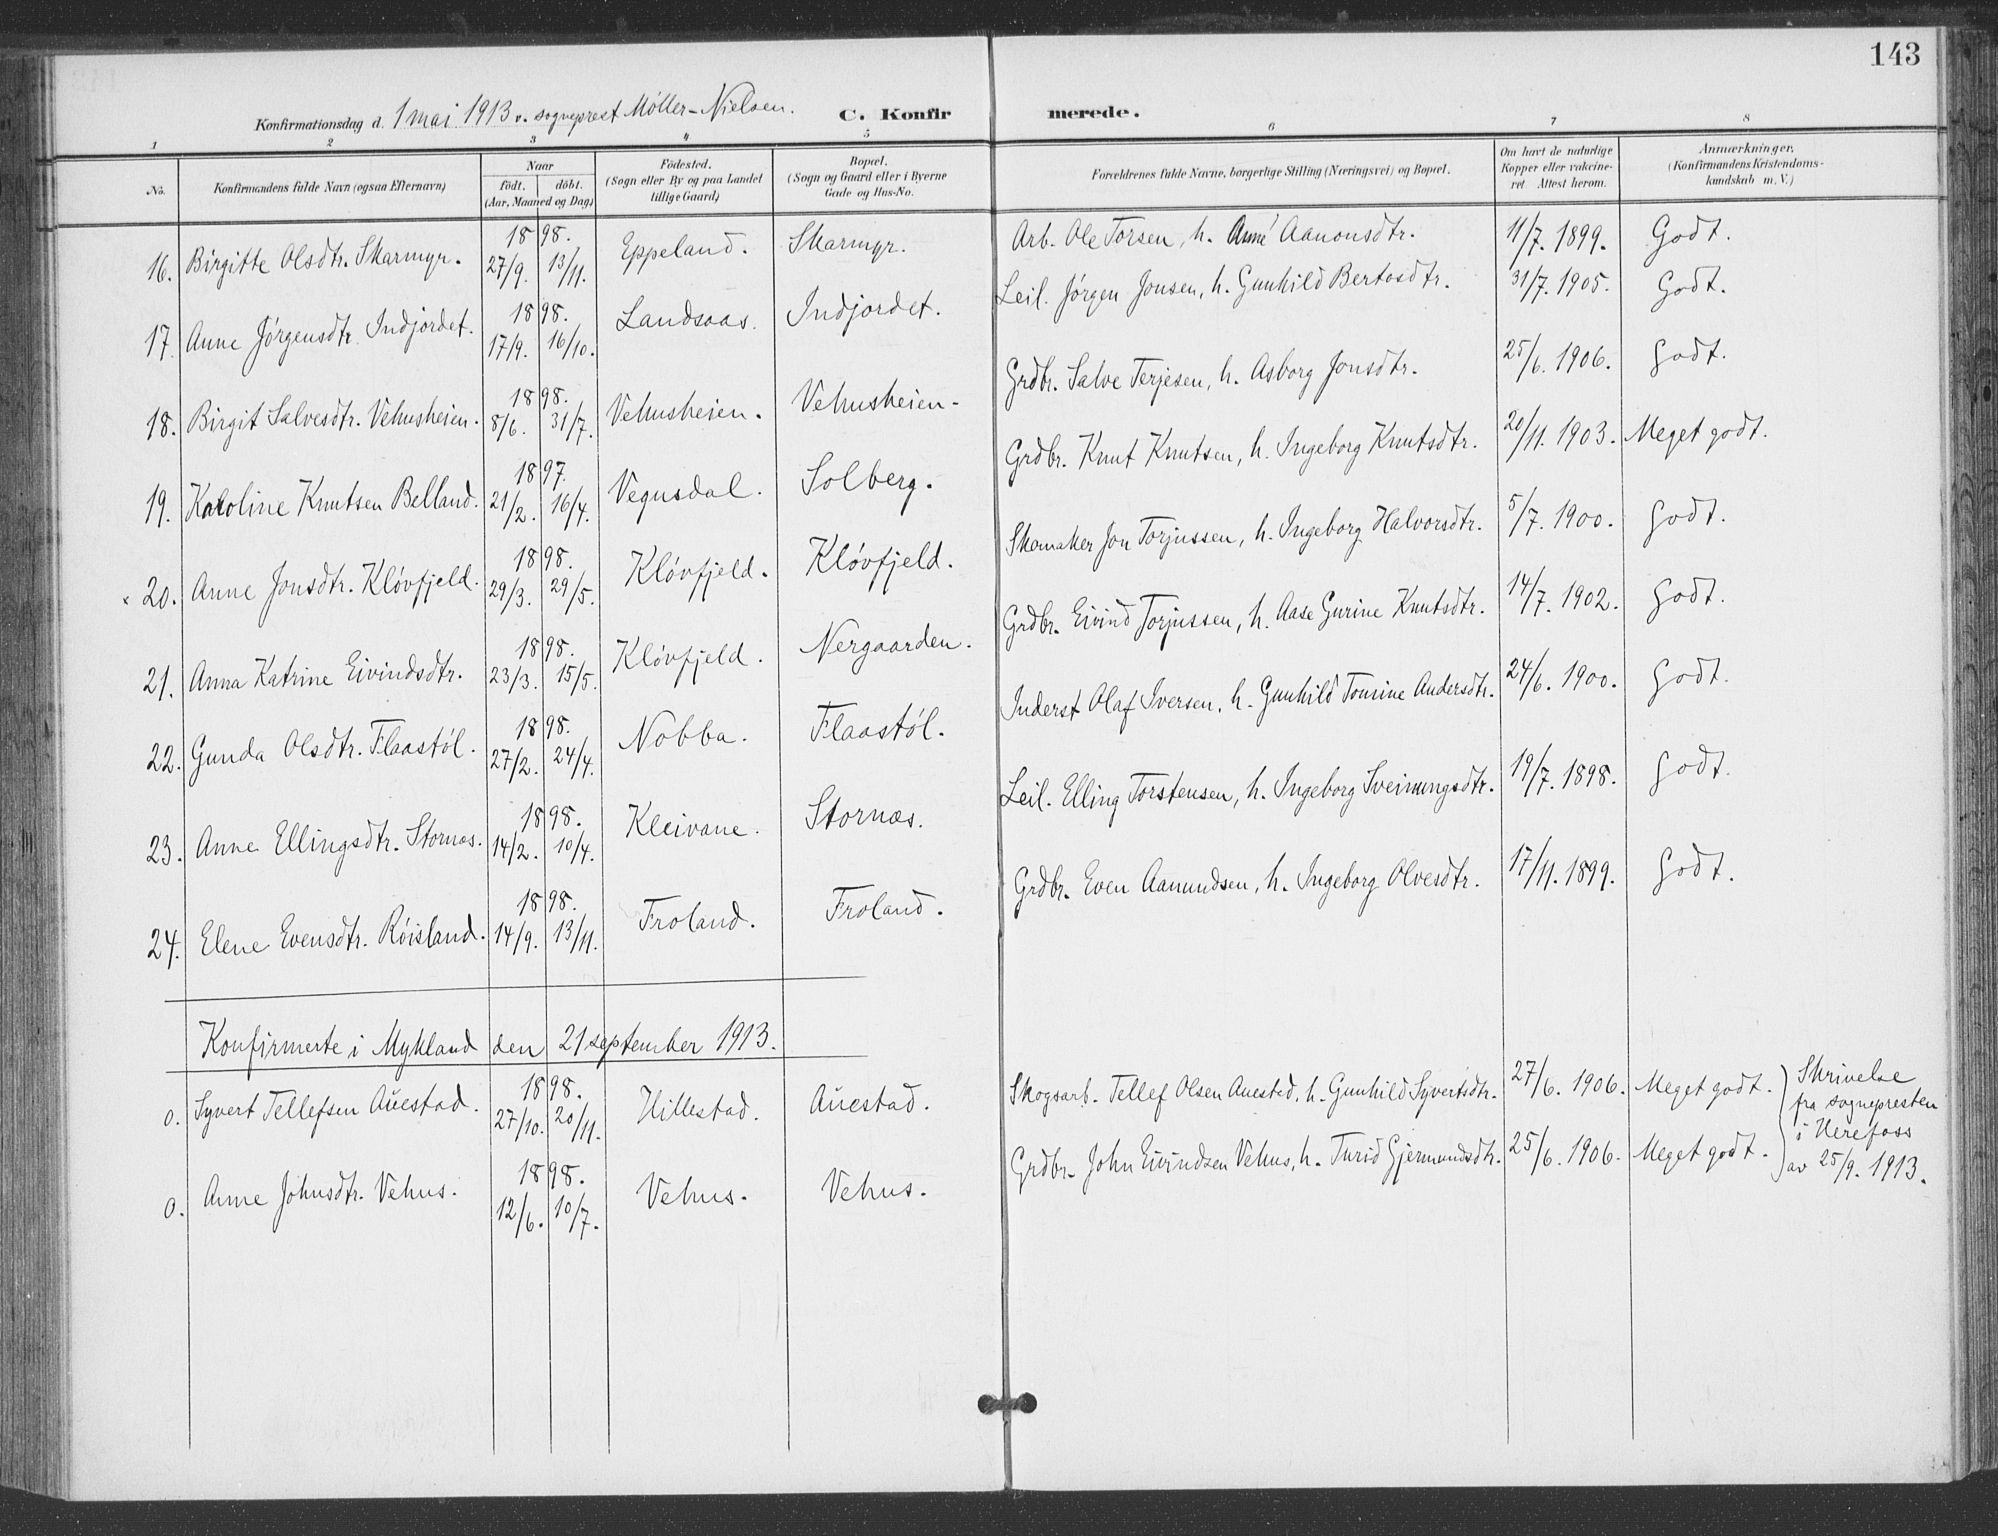 143
Konfirmationsdag d. 1 mai 1913 v. sogneprest Möller-Nielsen. C. Konfirmerede.
1 2 3 4 5 6 7 8
No. Konfirmandens fulde Navn (ogsaa Efternavn) Naar födt. döbt. (Aar, Maaned og Dag) Födested. (Sogn eller By og paa Landet tillige Gaard) Bopæl. (Sogn og Gaard eller i Byerne Gade og Hus-No. Forældrenes fulde Navne, borgerlige Stilling (Næringsvei) og Bopæl. Om havt de naturlige Kopper eller vakcineret. Attest herom. Anmærkninger. (Konfirmandens Kristendomskundskab m. V.)
16. Birgitte Olsdtr. Skarmyr. 1898. 27/9. 13/11. Eppeland. Skarmyr. Arb. Ole Torsen, h. Anne Aanonsdtr. 11/7. 1899. Godt.
17. Anne Jörgensdtr. Indjordet. 1898. 17/9. 16/10. Landsaas. Indjordet. Leil. Jörgen Jonsen, h. Gunhild Bertosdtr. 31/7. 1905. Godt.
18. Birgit Salvesdtr. Vehusheien. 1898. 8/6. 31/7. Vehusheien. Vehusheien. Grdbr. Salve Terjesen, h. Asborg Jonsdtr. 25/6. 1906. Godt.
19. Karoline Knutsen Belland. 1897. 21/2. 16/4. Vegusdal. Solberg. Grdbr. Knut Knutsen, h. Ingeborg Knutsdtr. 20/11. 1903. Meget godt.
20. Anne Jonsdtr. Klövfjeld. 1898. 29/3. 29/5. Klövfjeld. Klövfjeld. Skomaker Jon Torjussen, h. Ingeborg Halvorsdtr. 5/7. 1900. Godt.
21. Anna Katrine Eivindsdtr. 1898. 23/3. 15/5. Klövfjeld. Nergaarden. Grdbr. Eivind Torjussen, h. Aase Gurine Knutsdtr. 14/7. 1902. Godt.
22. Gunda Olsdtr. Flaastöl. 1898. 27/2. 24/4. Nobba. Flaastöl. Inderst Olaf Iversen, h. Gunhild Tomine Andersdtr. 24/6. 1900. Godt.
23. Anne Ellingsdtr. Stornæs. 1898. 14/2. 10/4. Kleivane. Stornæs. Leil. Elling Torstensen, h. Ingeborg Sveinungsdtr. 19/7. 1898. Godt.
24. Elene Evensdtr. Röisland. 1898. 14/9. 13/11. Froland. Froland. Grdbr. Even Aamundsen, h. Ingeborg Olvesdtr. 17/11. 1899. Godt.
Konfirmerte i Mykland den 21 september 1913.
0. Syvert Tellefsen Auestad. 1898. 27/10. 20/11. Hillestad. Auestad. Skogsarb. Tellef Olsen Auestad, h. Gunhild Syvertsdtr. 27/6. 1906. Meget godt.
0. Anne Johnsdtr. Vehus. 1898. 12/6. 10/7. Vehus. Vehus. Grdbr. John Eivindsen Vehus, h. Turid Gjermundsdtr. 25/6. 1906. Meget godt.
Skrivelse
fra sognepresten
i Herefoss
av 25/9. 1913.